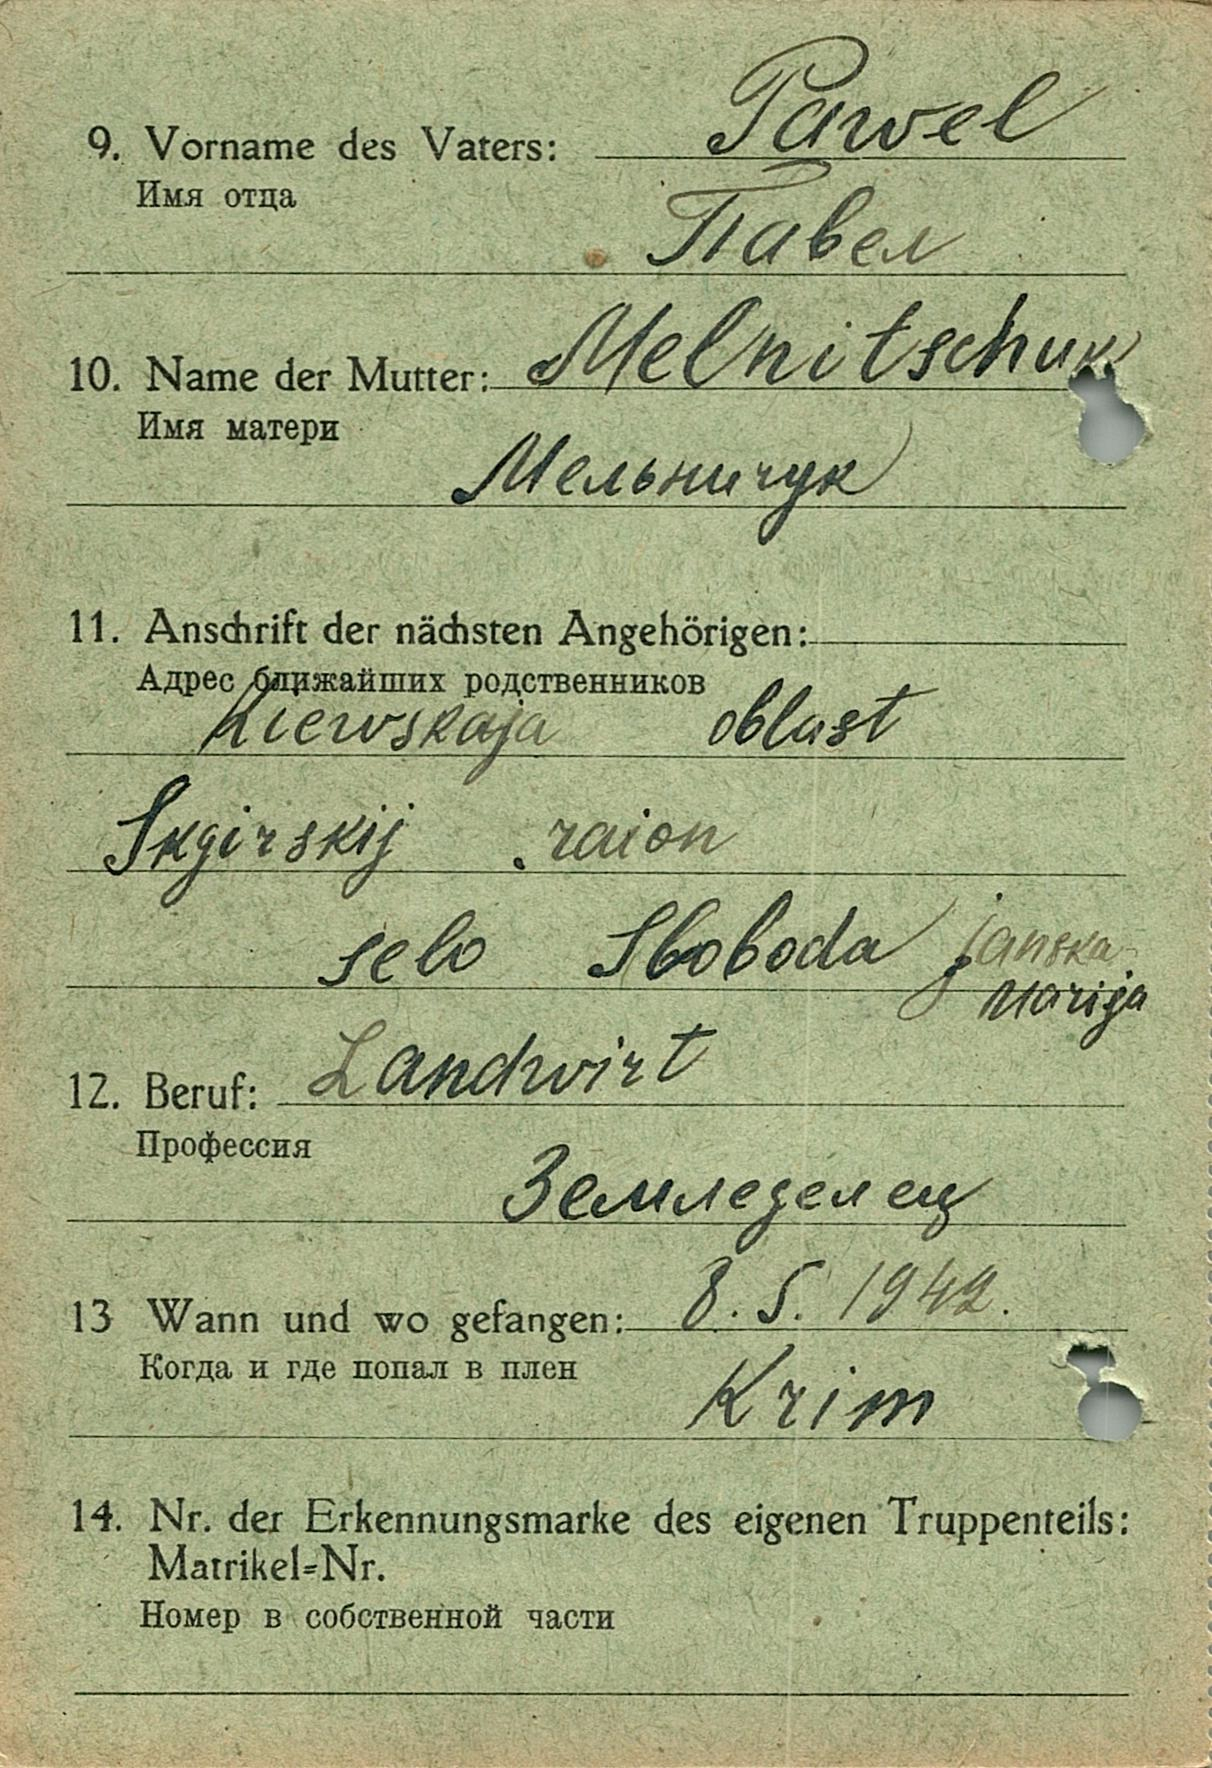 9. Vorname des Vaters: Pawel
Имя отца
Павел
10. Name der Mutter: Melnitschuk
Имя матери
Мельничук
11. Anschrift der nächsten Angehörigen:
Адрес ближайших родственников
Kiewskaja oblast
Skgirskij raion
selo Sboboda janska
Marija
12. Beruf: Landwirt
Профессия
Земледелец
13 Wann und wo gefangen: 8. 5. 1942.
Когда и где попал в плен
Krim
14. Nr. der Erkennungsmarke des eigenen Truppenteils:
Matrikel=Nr.
Номер в собственной части